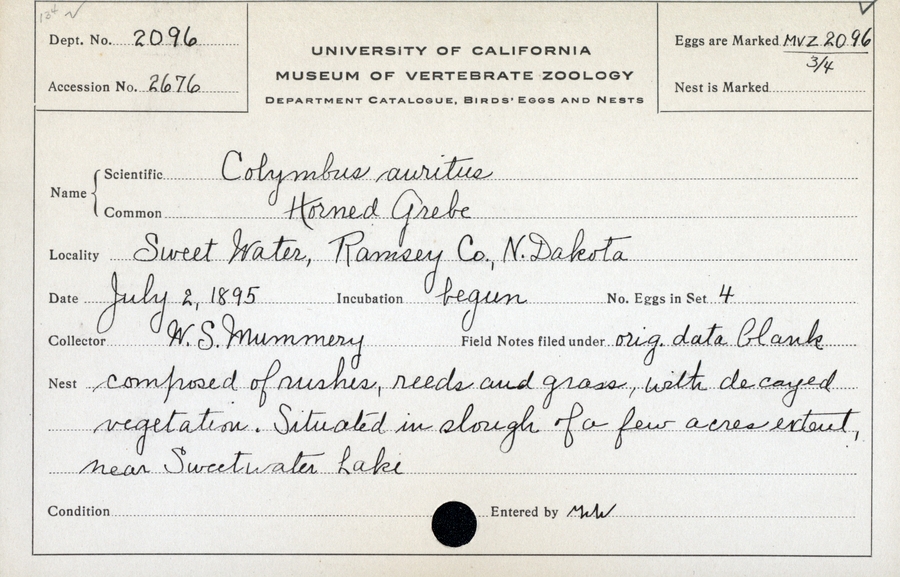 Dept. No. 2096
Accession No. 2676
UNIVERSITY OF CALIFORNIA
MUSEUM OF VERTEBRATE ZOOLOGY
DEPARTMENT CATALOGUE, BIRDS' EGGS AND NESTS
Eggs are Marked MVZ 2096
3/4
Nest is Marked
Name
Scientific Colymbus auritus
Common Horned Grebe
Locality Sweet Water, Ramsey Co., N. Dakota
Date July 2, 1895 Incubation begun No. Eggs in Set 4
Collector W. S. Mummery Field Notes filed under orig. data blank
Nest composed of rushes, reeds and grass, with decayed
vegetation. Situated in slough of a few acres extent,
near Sweetwater Lake
Condition Entered by